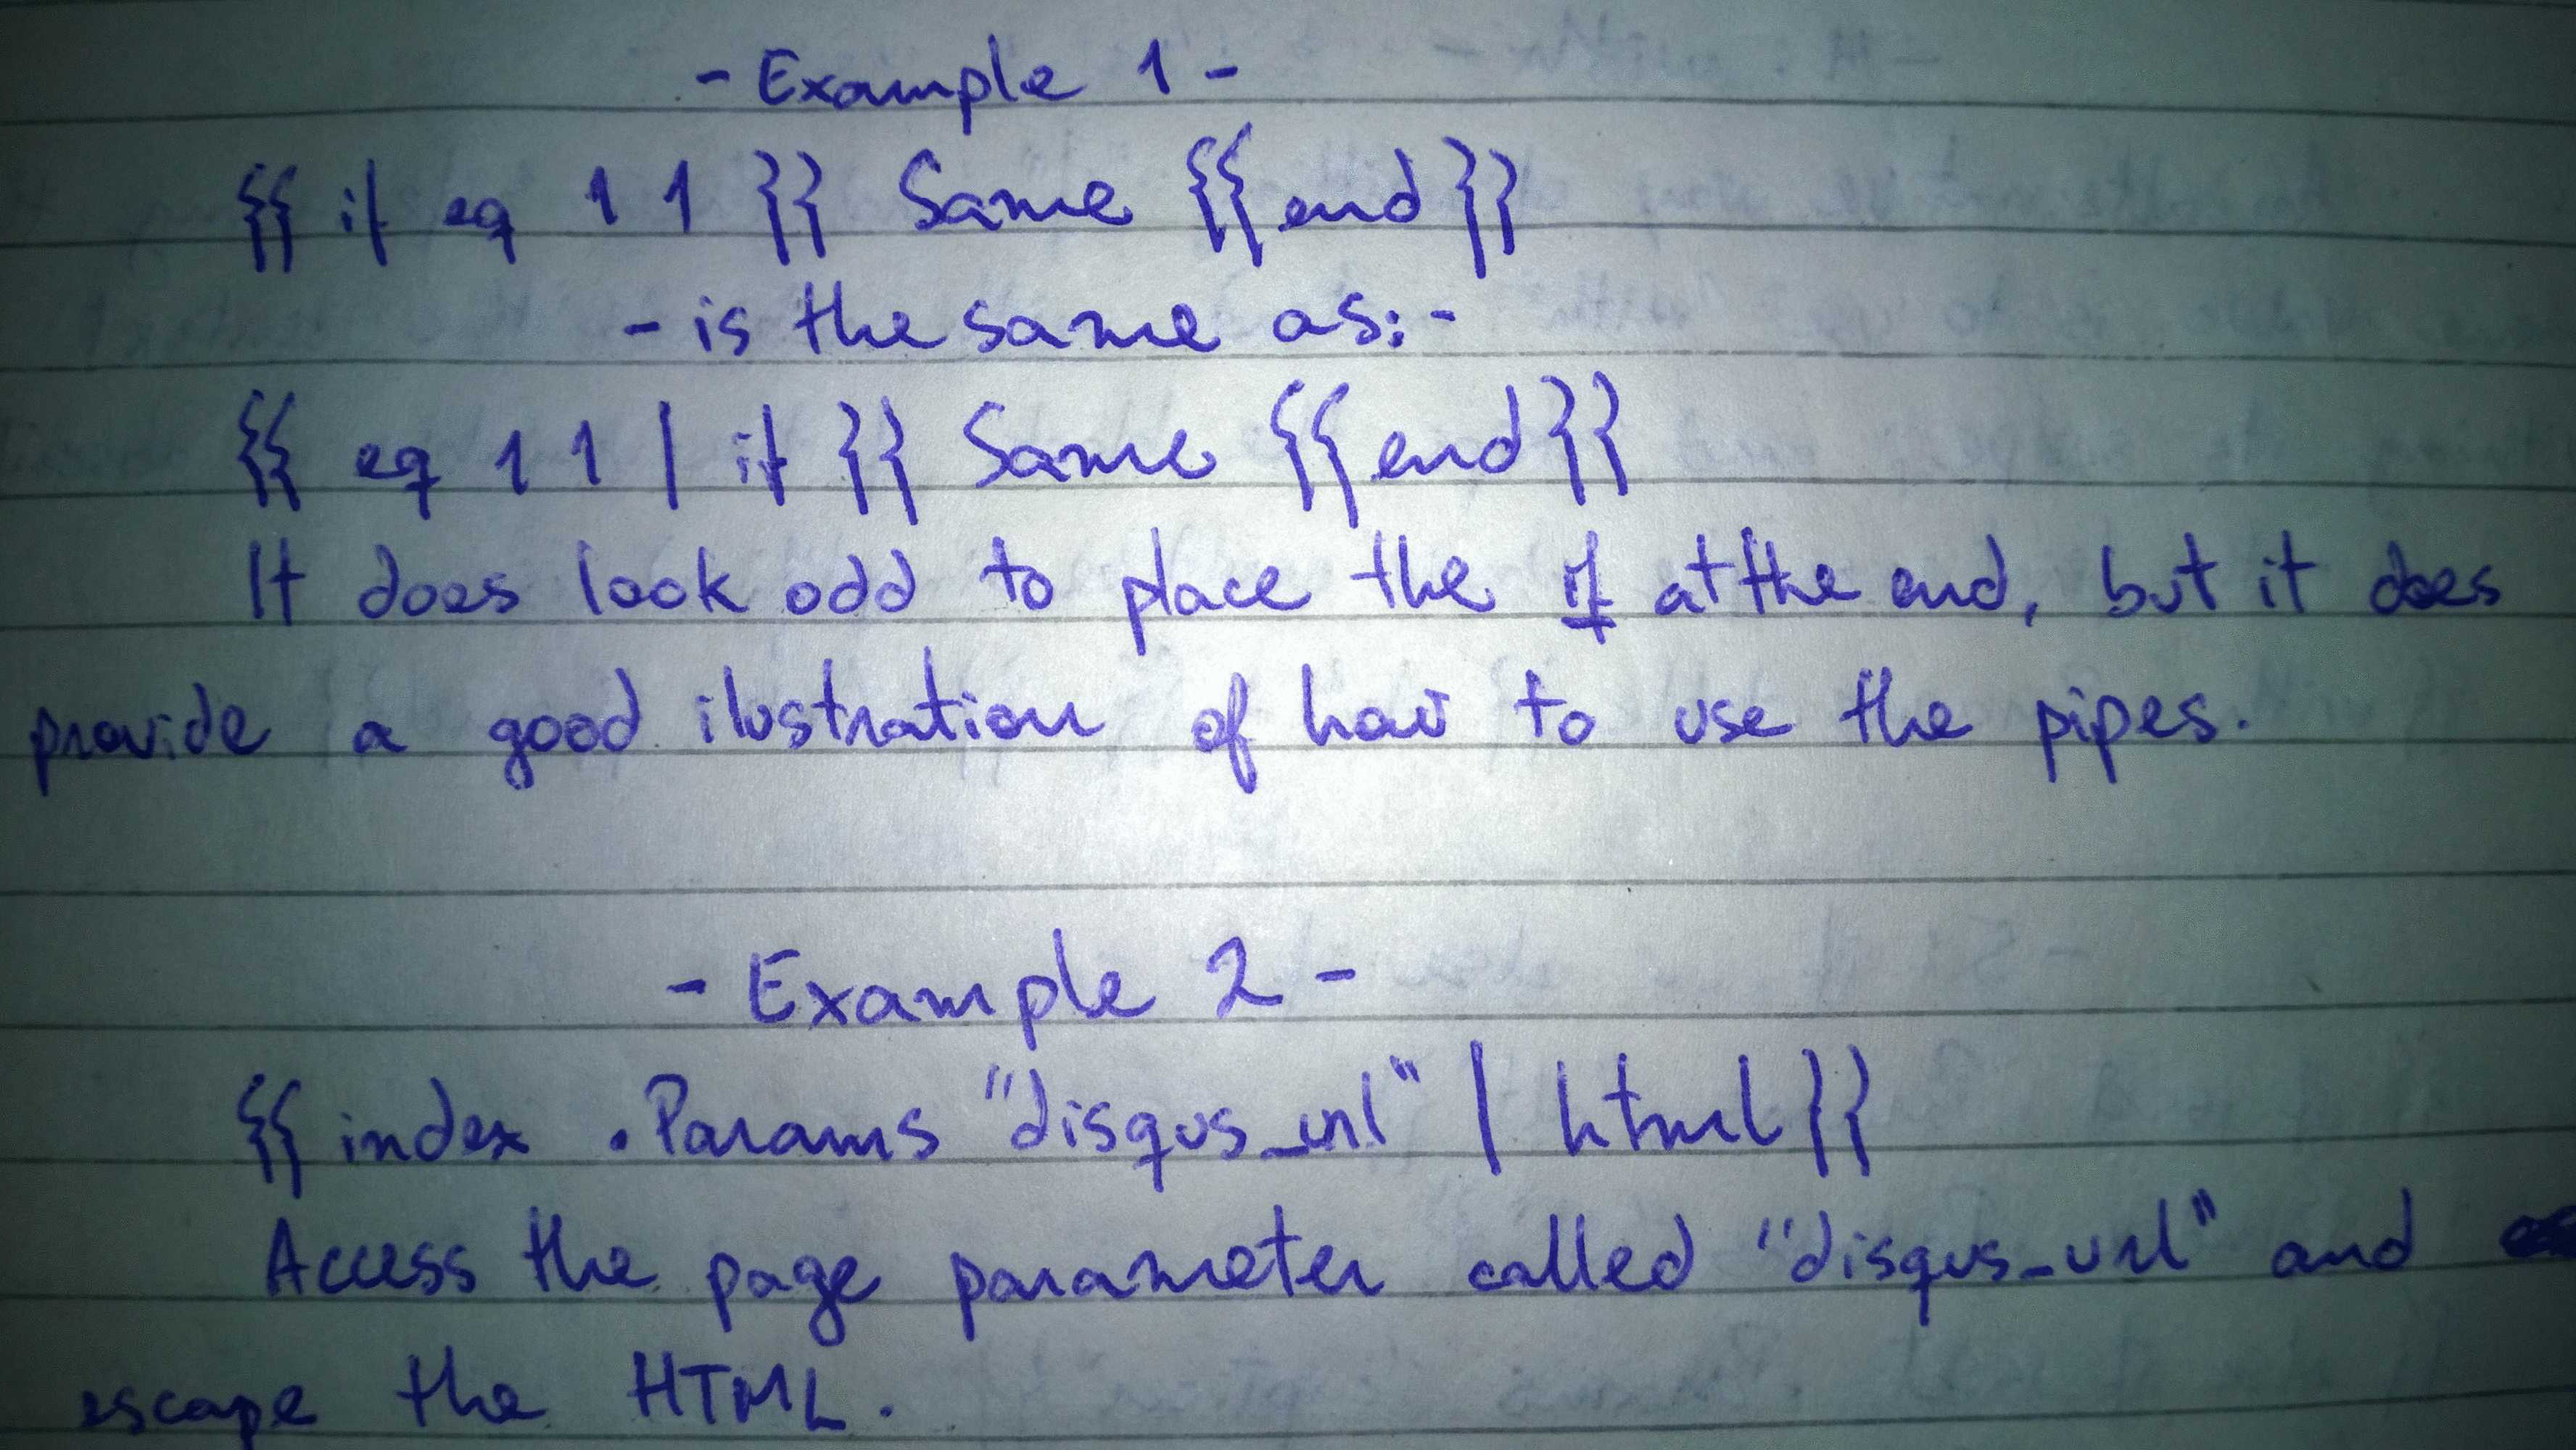 - Example 1 -
{{ if eq 1 1 }} Same {{end}}
- is the same as: -
{{ eq 1 1 | if }} Same {{end}}
It does look odd to place the if at the end, but it does
provide a good ilustration of how to use the pipes.
- Example 2 -
{{ index .Params "disqus_url" | html }}
Access the page parameter called "disqus_url" and
escape the HTML.